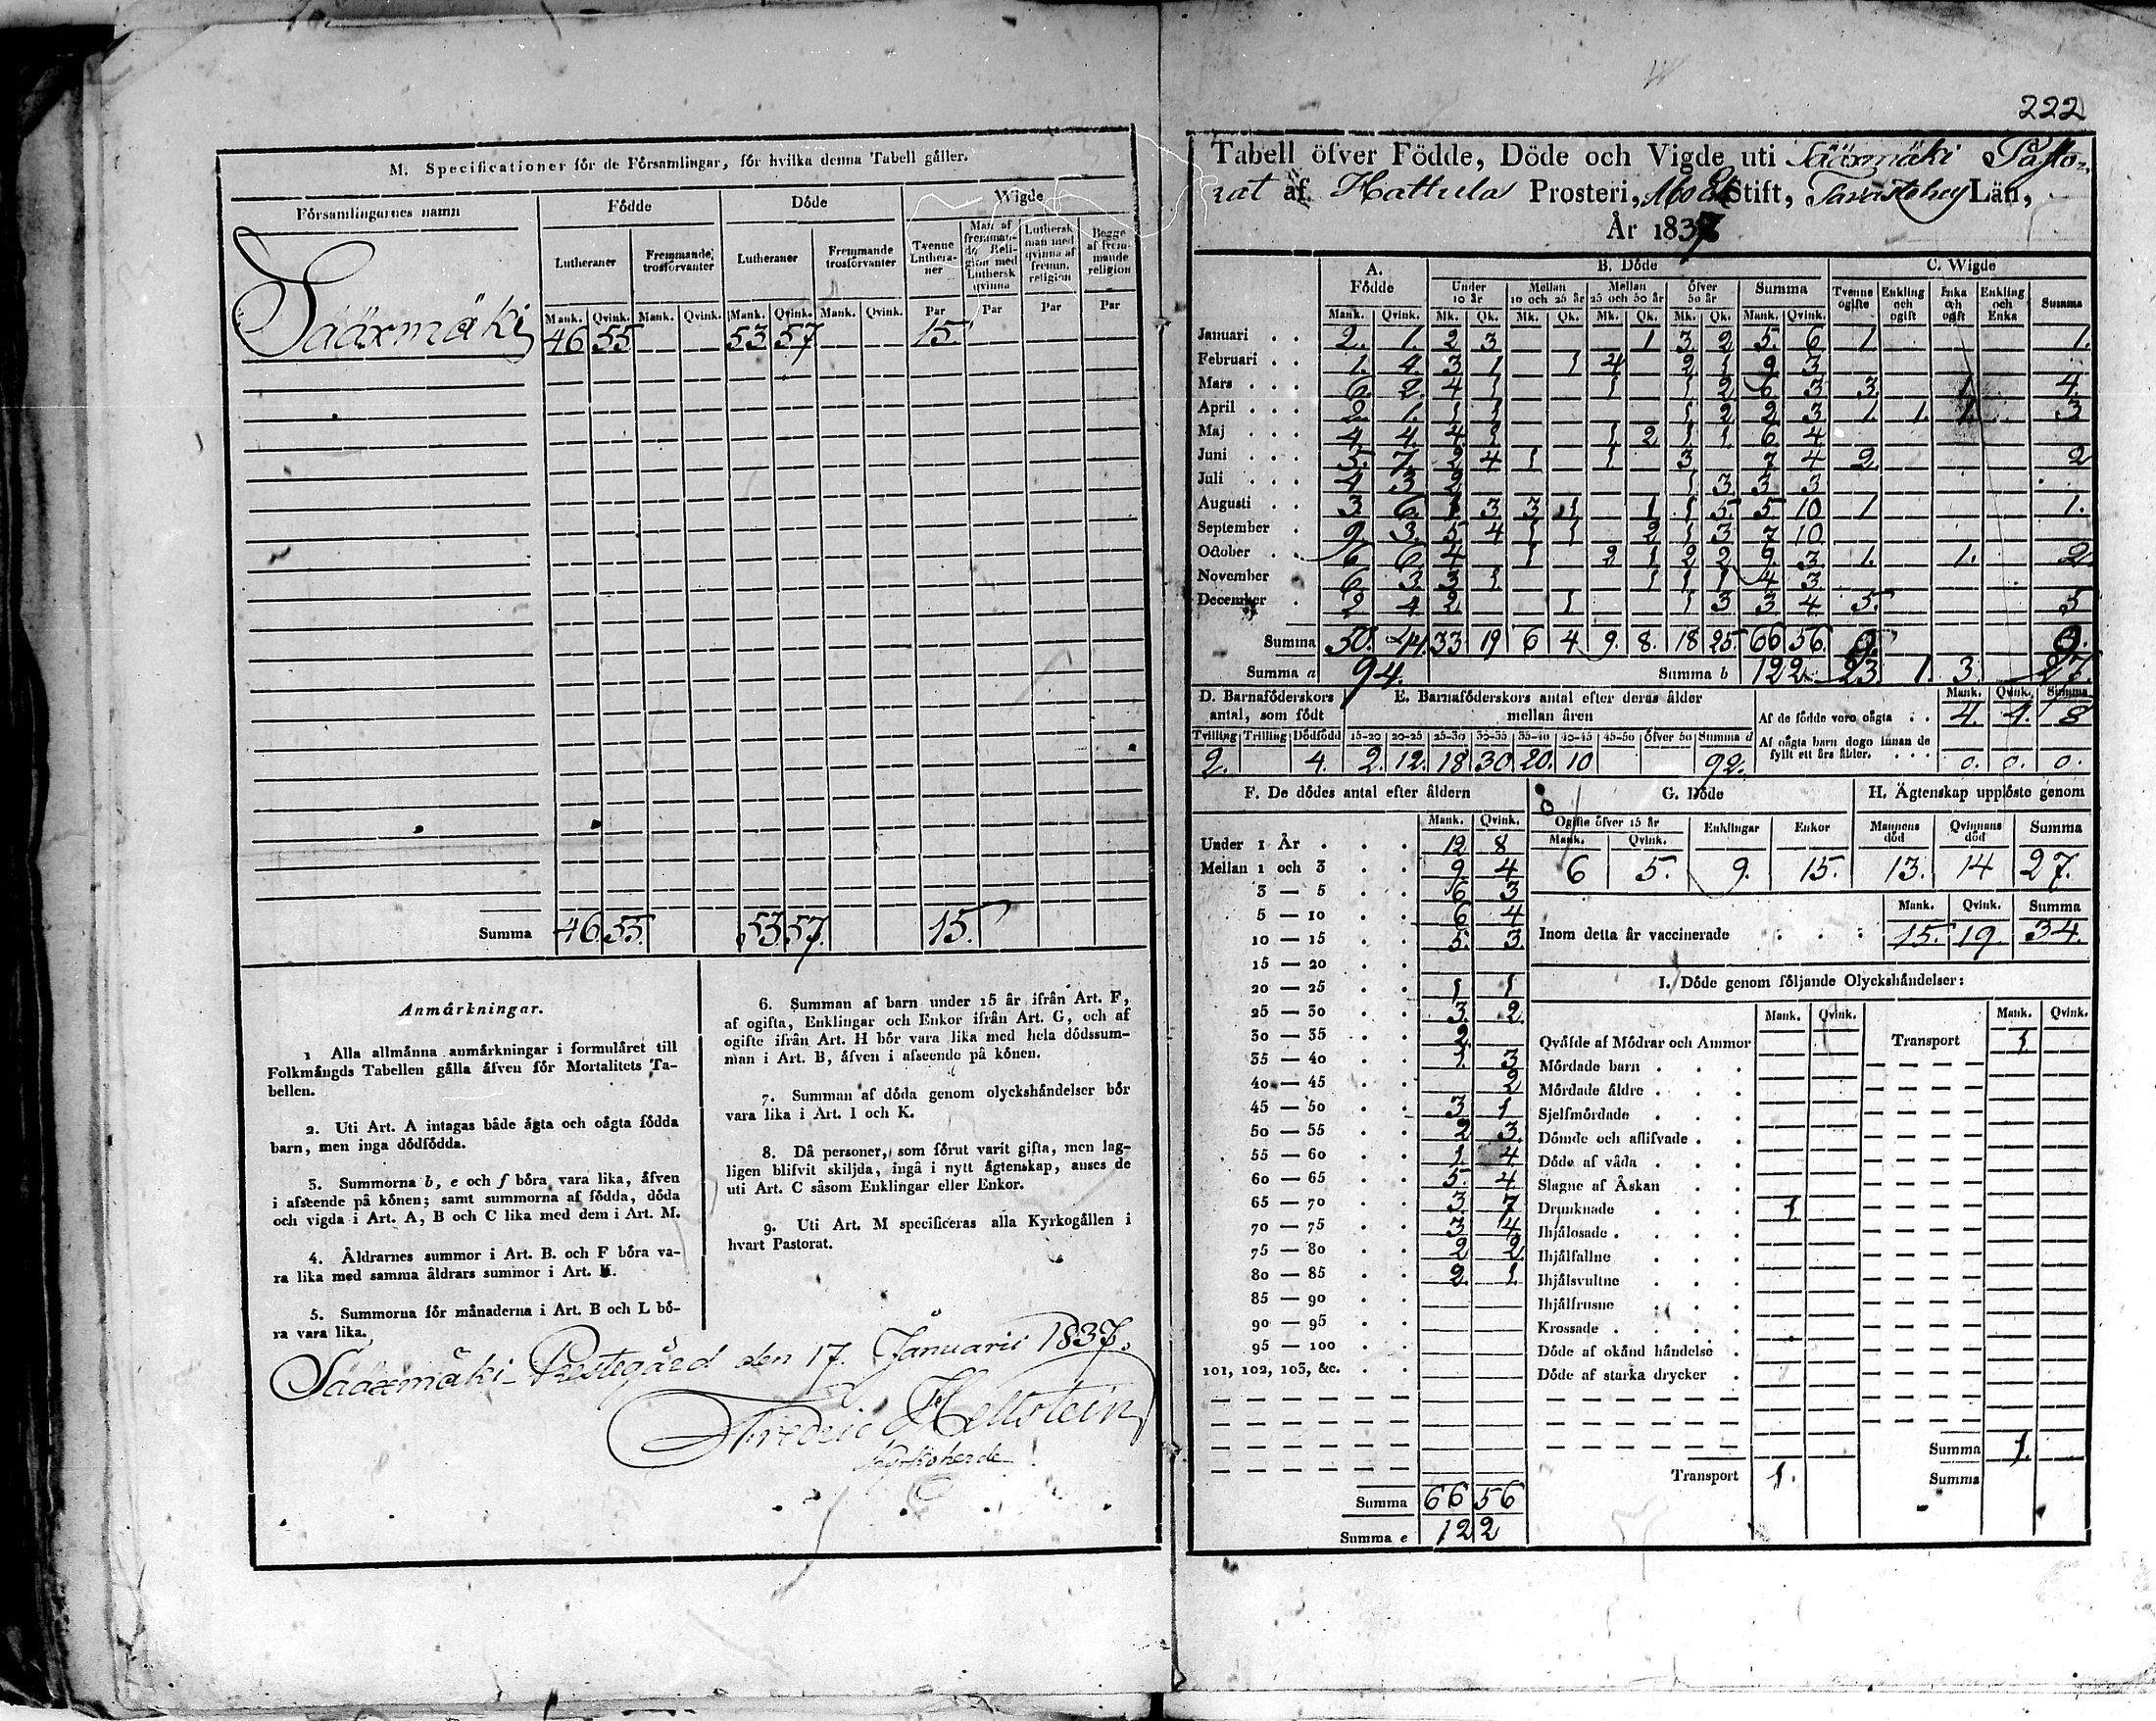 M. Specificationer för de Församlingar, för hvilka denna Tabell gäller.
Församlingarnes namn Födde Döde Wigde
Lutheraner Fremmande trosförvanter Lutheraner Fremmande trosförvanter Tvenne Lutheraner Man af fremmande Religion med Luthersk qvinna Luthersk man med qvinna af fremm. religion Begge af fremmande religion
Mank. Qvink. Mank. Qvink. Mank. Qvink. Mank. Qvink. Par Par Par Par
Sääxmäki 46 55 53 57 15.
Summa 46. 55. 53 57. 15.
Anmärkningar.
1 Alla allmänna anmärkningar i formuläret till
Folkmängds Tabellen gälla äfven för Mortalitets Ta-
bellen.
2. Uti Art. A intagas både ägta och oägta födda
barn, men inga dödfödda.
3. Summorna b, e och f böra vara lika, äfven
i afseende på könen; samt summorna af födda, döda
och vigda i Art. A, B och C lika med dem i Art. M.
4. Åldrarnes summor i Art. B. och F böra va-
ra lika med samma åldrars summor i Art. K.
5. Summorna för månaderna i Art. B och L bö-
ra vara lika.
6. Summan af barn under 15 år ifrån Art. F,
af ogifta, Enklingar och Enkor ifrån Art. G, och af
ogifte ifrån Art. H bör vara lika med hela dödssum-
man i Art. B, äfven i afseende på könen.
7. Summan af döda genom olyckshändelser bör
vara lika i Art. I och K.
8. Då personer, som förut varit gifta, men lag-
ligen blifvit skiljda, ingå i nytt ägtenskap, anses de
uti Art. C såsom Enklingar eller Enkor.
9. Uti Art. M specificeras alla Kyrkogällen i
hvart Pastorat.
Sääxmäki Prestegård den 17. Januarii 1837.
Fredric Hellstein
Kyrkoherde
222
Tabell öfver Födde, Döde och Vigde uti Sääxmäki Pasto-
rat af Hattula Prosteri, Åbo Stift, Tavastehus Län,
År 1837
A. Födde B. Döde C. Wigde
Under 10 år Mellan 10 och 25 år Mellan 25 och 50 år öfver 50 år Summa Tvenne ogifte Enkling och ogift Enka och ogift Enkling och Enka Summa
Mank. Qvink. Mk. Qk. Mk. Qk. Mk. Qk. Mk. Qk. Mank. Qvink.
Januari 2. 1. 2 3 1 3 2 5 6 1 1.
Februari 1. 4. 3 1 1 4 2 1 9 3
Mars 6. 2. 4 1 1 1 2 6 3 3. 1. 4.
April 2 1. 1 1 1 2 2 3 1. 1. 1. 3
Maj 4 4. 4 1 1 2 1 1 6 4
Juni 5. 7. 2 4 1 1 3 7 4 2. 2
Juli 4 3 2 1 3 3 3
Augusti 3 6. 1 3 3 1 1 1 5 5 10 1 1.
September 9. 3. 5 4 1 1 2 1 3 7 10
October 6 6 4 1 2 1 2 2 9. 3 1. 1. 2.
November 6 3 3 1 1 1 1 4 3
December 2 4 2 1 1 3 3 4 5. 5
Summa 50. 44. 33 19 6 4 9. 8. 18 25 66 56. 9. 9.
Summa a 94. Summa b 122 23 1. 3. 27.
D. Barnaföderskors antal, som födt E. Barnaföderskors antal efter deras ålder mellan åren Mank. Qvink. Summa
Af de födde voro oägta 4. 4. 8
Tvilling Trilling Dödfödd 15-20 20-25 25-30 30-35 35-40 40-45 45-50 öfver 50 Summa d
Af oägta barn dogo innan de fyllt ett års ålder. 0. 0. 0.
2. 4. 2. 12. 18 30. 20. 10 92.
F. De dödes antal efter åldern G. Döde H. Ägtenskap upplöste genom
Mank. Qvink. Ogifte öfver 15 år Enklingar Enkor Mannens död Qvinnans död Summa
Mank. Qvink.
6 5. 9. 15. 13. 14 27.
Under 1 År 12 8
Mellan 1 och 3 9. 4
3 — 5 6 3
5 — 10 6 4
10 — 15 5. 3
15 — 20
20 — 25 1 1
25 — 30 3. 2.
30 — 35 2
35 — 40 1. 3
40 — 45 2
45 — 50 3 1
50 — 55 2 3.
55 — 60 1. 4
60 — 65 5. 4
65 — 70 3 7
70 — 75 3 4
75 — 80 2 2
80 — 85 2. 1.
85 — 90
90 — 95
95 — 100
101, 102, 103, &c.
Summa 66 56
Summa e 122
Mank. Qvink. Summa
Inom detta år vaccinerade 15. 19. 34.
I. Döde genom följande Olyckshändelser:
Mank. Qvink. Mank. Qvink.
Qväfde af Mödrar och Ammor Transport 1
Mördade barn
Mördade äldre
Sjelfmördade
Dömde och aflifvade
Döde af våda
Slagne af Åskan
Drunknade 1
Ihjälosade
Ihjälfallne
Ihjälsvultne
Ihjälfrusne
Krossade
Döde af okänd händelse
Döde af starka drycker
Summa 1.
Transport 1. Summa